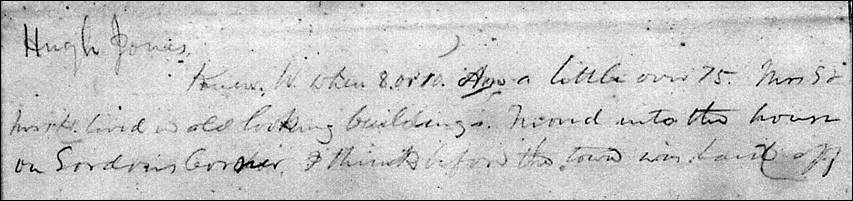 Hugh Jones,
Knew W. when 8. or 10. Age a little over 75. Mrs G &
Mrs H. lived in old looking buildings. Moved into the house
on Gordons Corner, I think before the town was laid off